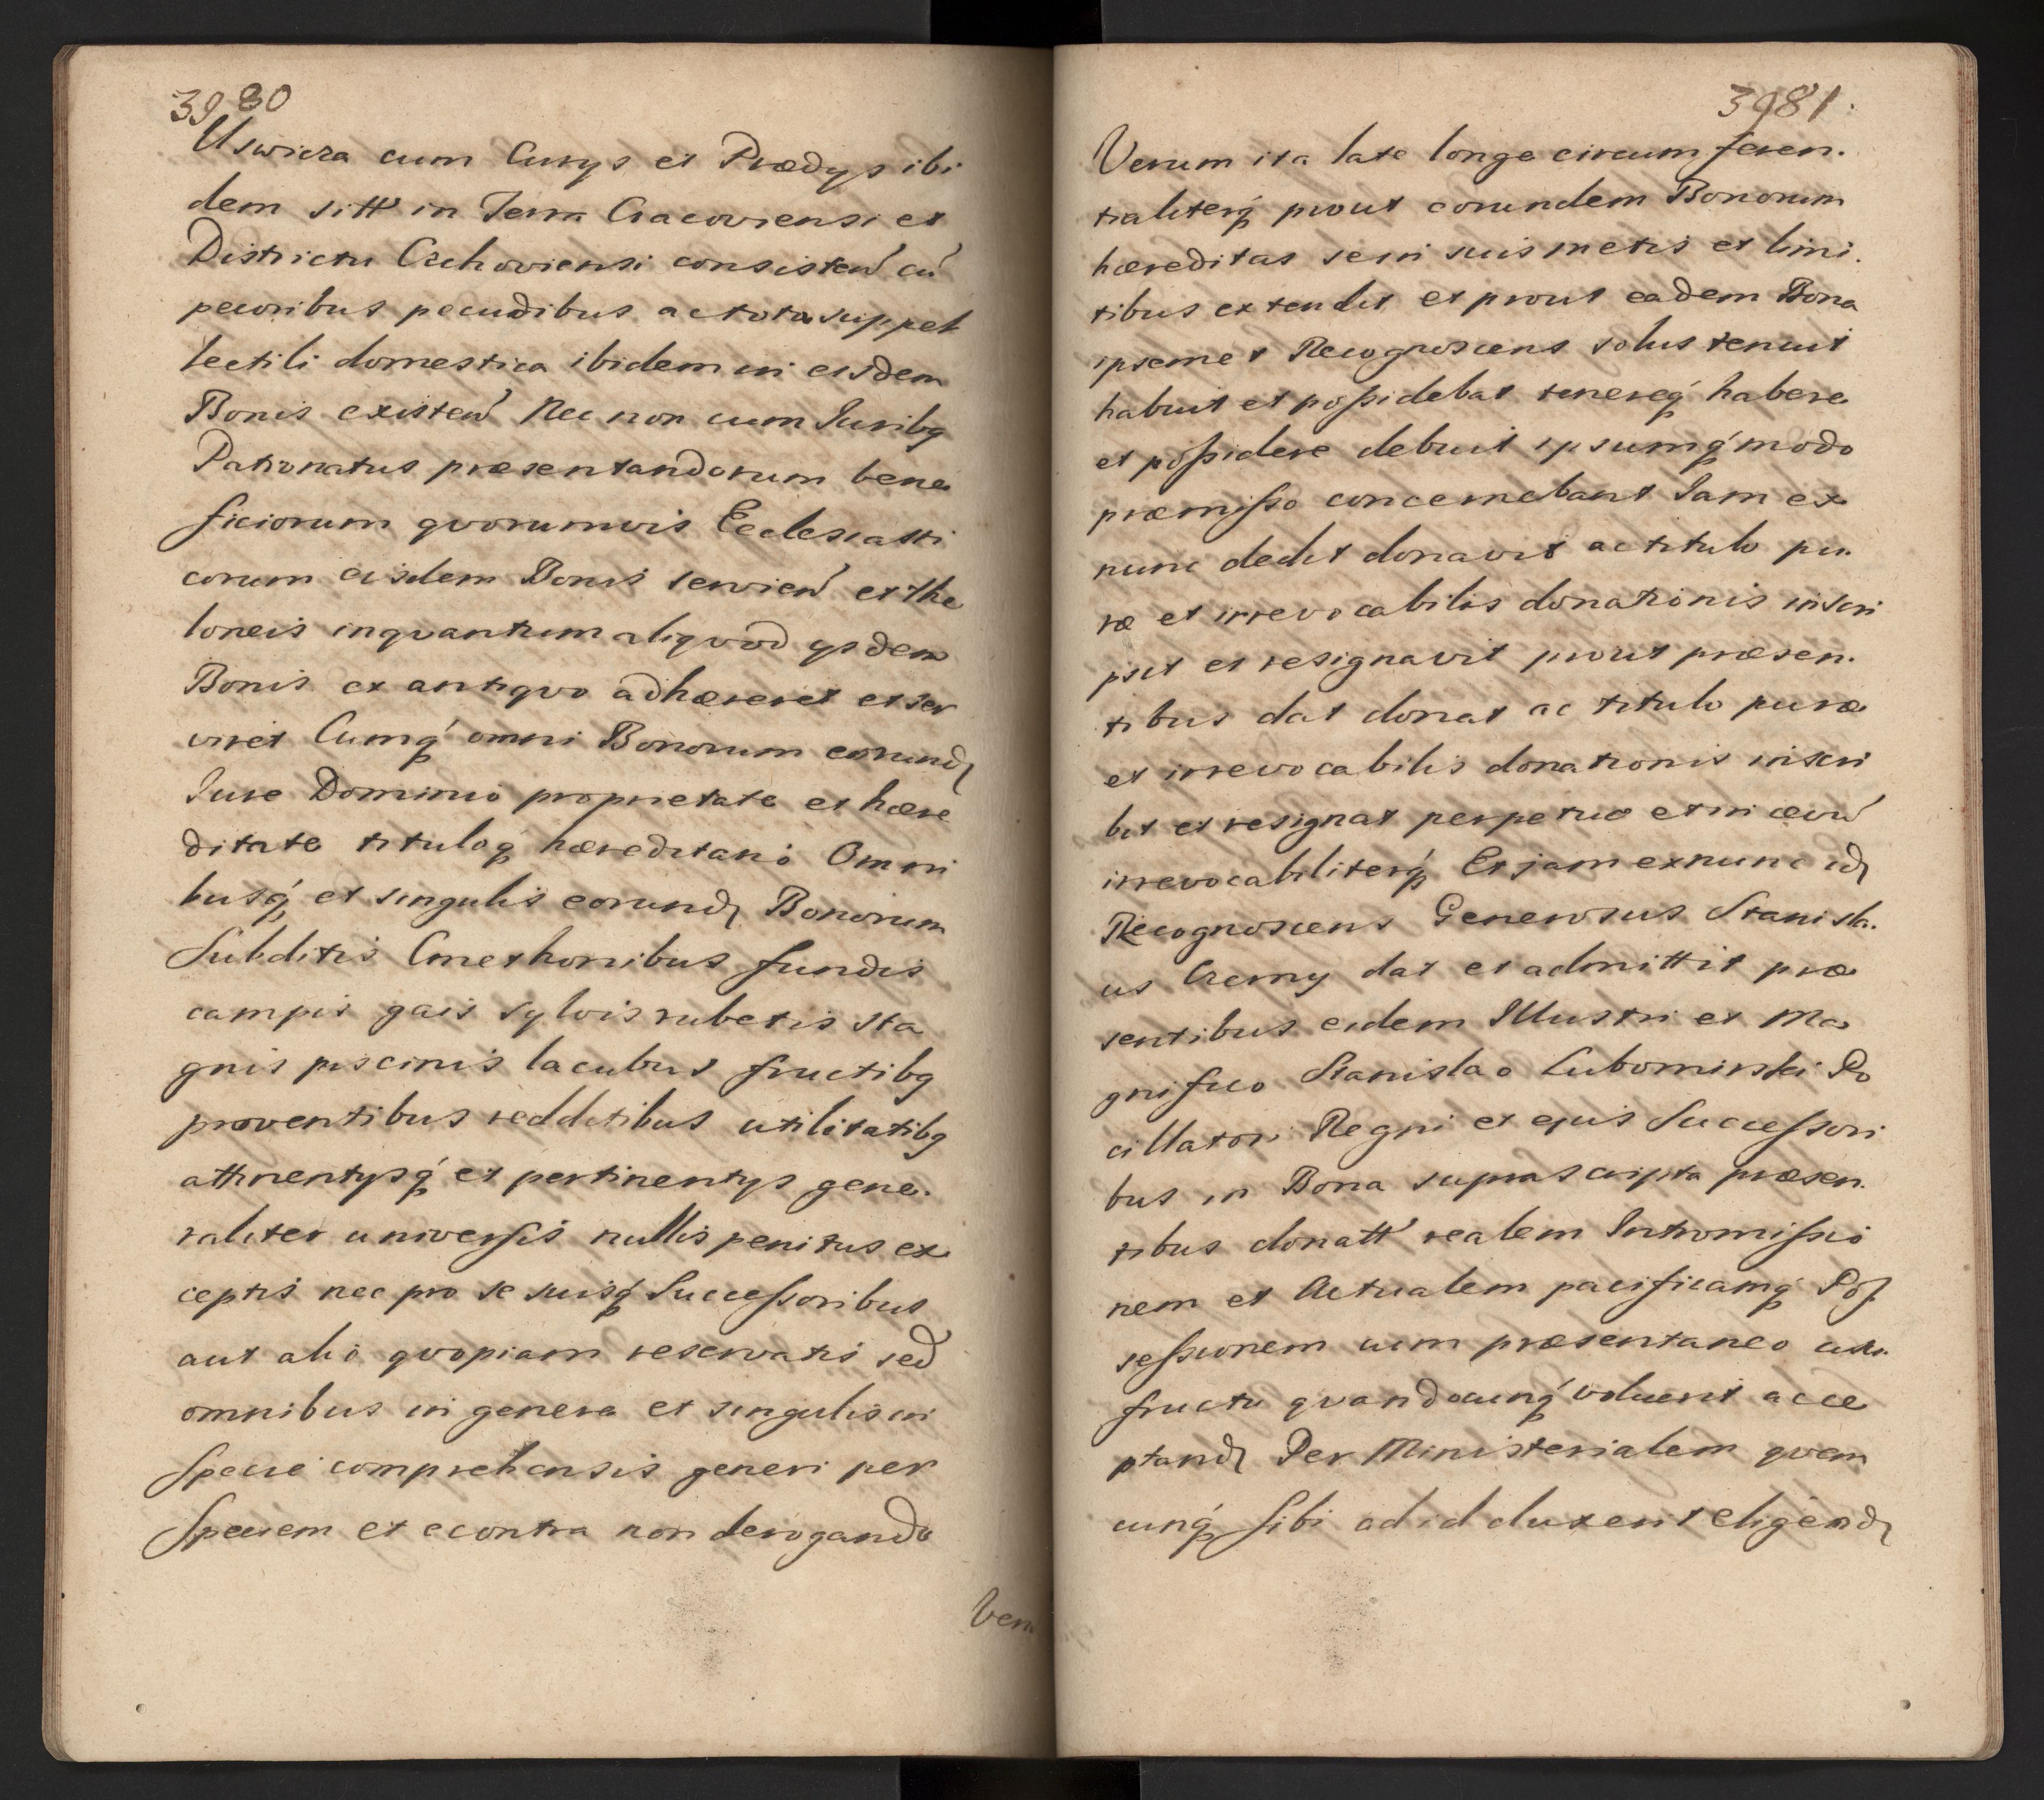 3980
Uswicza cum Curys et Prædys ibi
dem sitt in Terra Cracoviensi et
Districtu Czchoviensi consisten cu
pecoribus pecudibus ac tota suppel
lectili domestica ibidem in eisdem
Bonis existen Nec non cum Iuribq
Patronatus præsentandorum bene
ficiorum qvorumvis Ecclesiasti
corum eisdem Bonis servien et the
loneis inqvantum aliqvod ysdem
Bonis ex antiqvo adhæreret et ser
viret Cumq omni Bonorum eorund
Iure Dominio proprietate et hære
ditate tituloq hæreditario Omni
busq et singulis eorund Bonorum
Subditis Cmethonibus fundis
campis gais sylvis rubetis sta
gnis piscinis lacubus fructibq
proventibus redditibus utilitatibq
attinentysq et pertinentys gene.
raliter universis nullis penitus ex
ceptis nec pro se suisq Successoribus
aut alio qvopiam reservatis sed
omnibus in genere et singulis in
Specie comprehensis generi per
Speciem et econtra non derogando
Veru
3981.
Verum ita late longe circumferen.
tialiterq prout eorundem Bonorum
hæreditas sem suis metis et limi.
tibus extendit et prout eadem Bona
ipsemet Recognoscens solus tenuit
habuit et possidebat tenereq habere
et possidere debuit ipsumq modo
præmisso concernebant Iam ex
nunc dedit donavit ac titulo pu.
ræ et irrevocabilis donationis inscri
psit et resignavit prout præsen.
tibus dat donat ac titulo puræ
et irrevocabilis donationis inscri
bit et resignat perpetuo et in ævu
irrevocabiliterq Et jam exnunc id
Recognoscens Generosus Stanisla.
us Czerny dat et admittit præ
sentibus eidem Illustri et Ma
gnifico Stanislao Lubomirski Po
cillatori Regni et ejus Successori
bus in Bona suprascripta præsen.
tibus donatt realem Intromissio
nem et Actualem pacificamq Pos
sessionem cum præsentaneo usu.
fructu qvandocunq voluerit acce
ptand Per Ministerialem qvem
cunq sibi ad id duxerit eligend